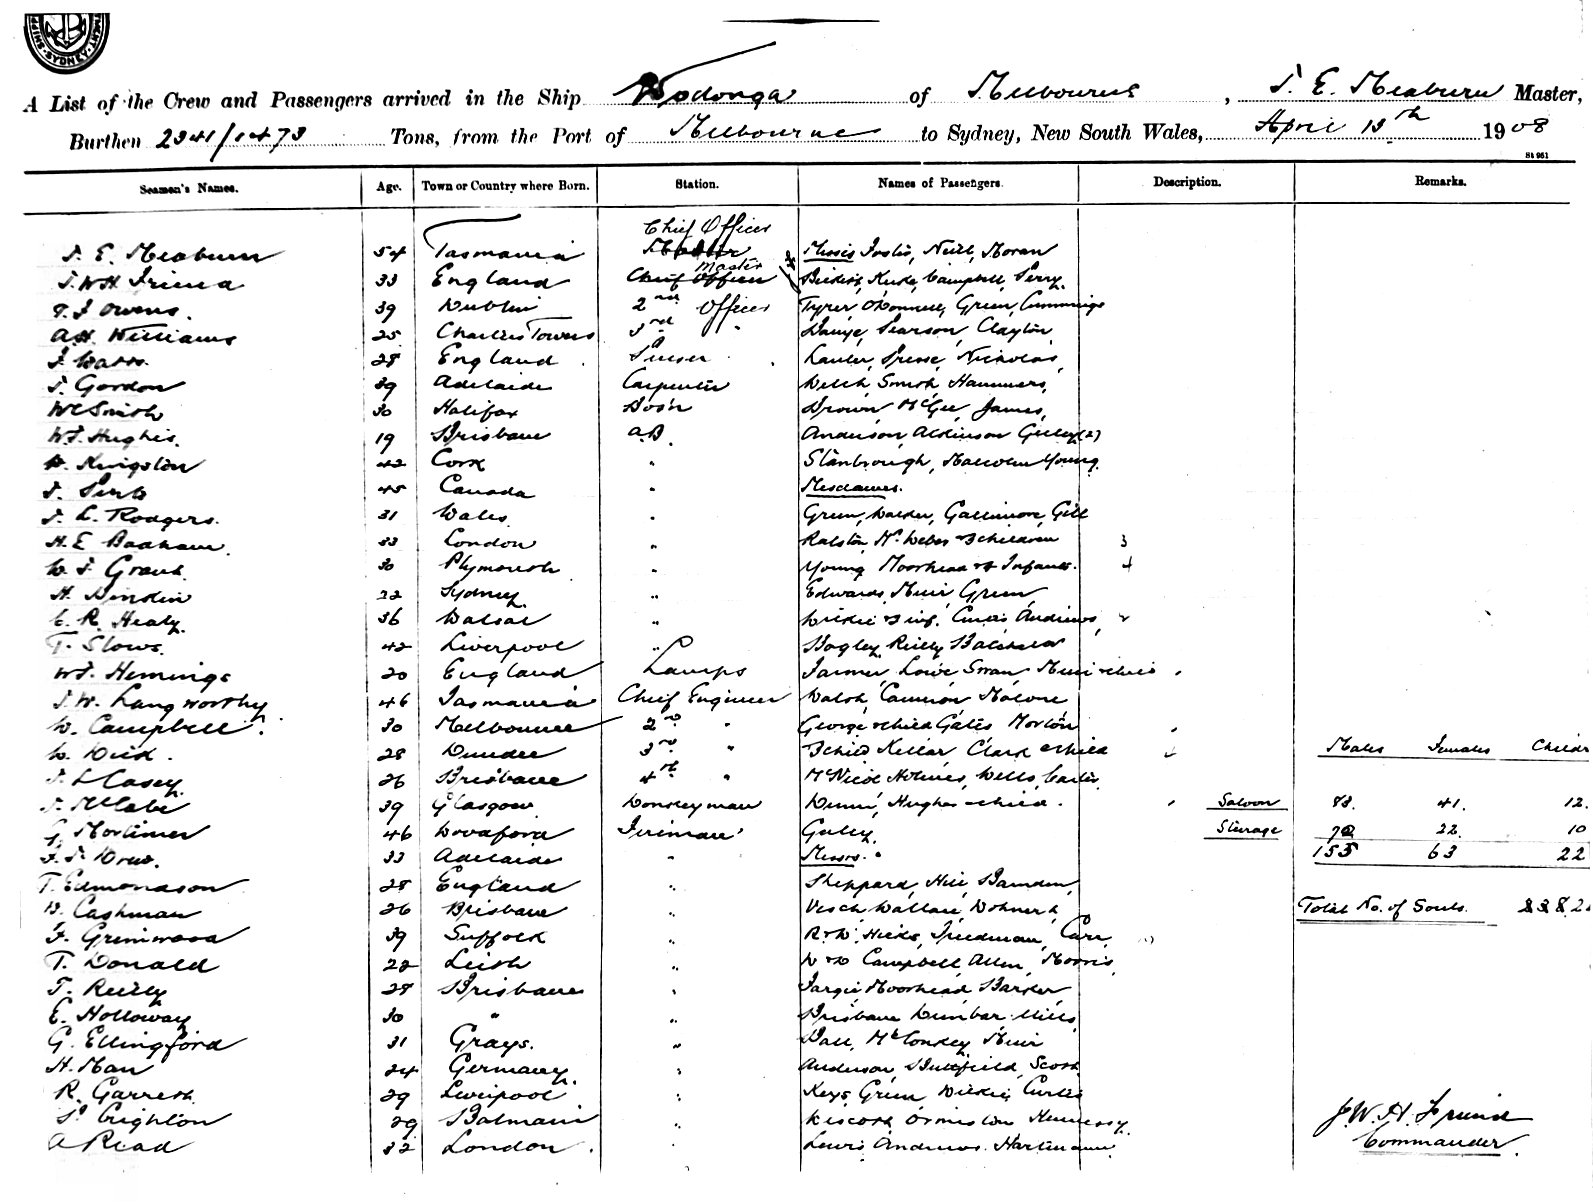 SHIPP MENT, SYDNEY
A List of the Crew and Passengers arrived in the Ship Wodonga of Melbourne, J. E. Meaburn Master,
Burthen 2341/1473 Tons, from the Port of Melbourne to Sydney, New South Wales, April 13th 1908
St 961
Seamen's Names. Age. Town or Country where Born. Station. Names of Passengers. Description. Remarks.
Chief Officer
J. E. Meaburn 54 Tasmania Master Misses Neill, Moran
J.W.H. Friend 33 England Chief Officer Master Campbell, Perry
T. J. Owens. 39 Dublin 2nd Officer Tyrer O'Donnell, Green, Cummings
A.H. Williams 25 Charters Towers 3rd " Pearson, Clayton,
J. Watts. 28 England Purser Nicholas,
J. Gordon 39 Adelaide Carpenter Welch, Smith, Hammers,
W.C. Smith 30 Halifax Bos'n Brown McGee, James,
W.J. Hughes. 19 Brisbane A.B. Anderson, Atkinson Guley (2)
Kingston 42 Cork " Stanbrough, Malcolm Young.
45 Canada " Mesdames.
J. L. Rodgers. 31 Wales. " Green, Walder, Gallimore, Gill
H. E. Badham. 33 London " Ralston, Mc Weber & 3 children 3
W. J. Grant. 30 Plymouth " Young Moorhead & Infant.
22 Sydney. " Edwards, Muir, Green,
C. R. Healy. 36 Walsal " Wilkie & inf. Curtis Andrews,
T. Slows. 42 Liverpool " Bagley, Reilly Batchelor
W.J. Hemings 20 England Lamps Farmer, Lowe, Swan, Muir & child
J.W. Langworthy 46 Tasmania Chief Engineer Walsh, Cameron Malone
W. Campbell. 30 Melbourne 2nd " George & child Gates Morton
W. Dick. 28 Dundee 3rd " & child Kellar, Clark & child
Males Females Childn
J. L. Casey. 26 Brisbane 4th " McNicol Holmes, Wells,
J. McCabe 39 Glasgow. Donkeyman Hughes & child. Saloon 83. 41. 12.
G. Mortimer 46 Fireman Guley. Steerage 72 22. 10
33 Adelaide " Messrs. 155 63 22
T. Edmondson 28 England " Sheppard, Hill,
Cashman 26 Brisbane " Wallace, Total No. of Souls.
F. Grimwood 39 Suffolk " Hicks, Carr,
T. Donald 22 Leith " Campbell, Allen, Morris,
T. Reilly 28 Brisbane " Moorhead, Barker
E. Holloway 30 " " Brisbane Dunbar Mills,
G. Ellingford 31 Grays. " Ball, McConkey, Muir
H. Man 24 Germany. " Anderson Scott,
R. Garrett. 29 Liverpool " Keys, Green Wilkie, Curtis
Crighton 29 Balmain " Ormiston Hennessy.
A Read 32 London. " Lewis Andrews. Hartmann
J.W.H. Friend
Commander.